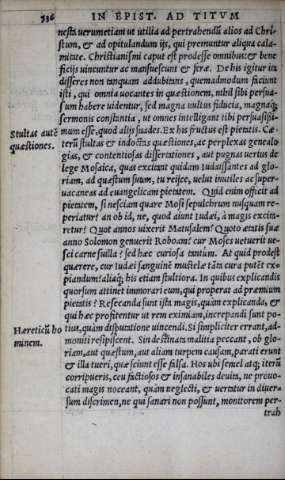 336 IN EPIST. AD TITVM
nesta verumetiam ut utilia ad pertrahendū alios ad Chri-
stum, & ad opitulandum ijs, qui premuntur aliqua cala-
mitate. Christianismi caput est prodesse omnibus: & bene
ficijs uincuntur ac mansuescunt & feræ. De his igitur ita
disseres non tanquam addubitans, quemadmodum faciunt
isti, qui omnia uocantes in quæstionem, nihil sibi persua-
sum habere uidentur, sed magna uultus fiducia, magnaq;
sermonis constantia, ut omnes intelligant tibi persuasissi-
Stultas autē mum esse, quod alijs suades. Ex his fructus est pietatis. Cæ-
quæstiones. terū stultas & indoctas quæstiones, ac perplexas genealo
gias, & contentiosas dissertationes, aut pugnas uerius de
lege Mosaica, quas excitant quidam Iudaissantes ad glo-
riam, ad quæstum suum, ut reijce, uelut inutiles ac super-
uacaneas ad euangelicam pietatem. Quid enim officit ad
pietatem, si nesciam quare Mosi sepulchrum nusquam re-
periatur? an ob id, ne, quod aiunt Iudæi, à magis excita-
retur? Quot annos uixerit Matusalem? Quoto ætatis suæ
anno Solomon genuerit Roboam? cur Moses uetuerit ue-
sci carne suilla? sed hæc curiosa tantum. At quid prodest
quærere, cur Iudæi sanguinē mustelæ tāta cura putēt ex-
piandum? aliaq; his etiam stultiora. In quibus explicandis
quorsum attinet immorari eum, qui properat ad præmium
pietatis? Resecanda sunt ista magis, quàm explicanda, &
qui hæc profitentur ut rem eximiam, increpandi sunt po-
Hæreticū ho tius, quàm disputatione uincendi. Si simpliciter errant, ad-
minem. moniti resipiscent. Sin destinata malitia peccant, ob glo-
riam, aut quæstum, aut aliam turpem causam, parati erunt
& illa tueri, quæ sciunt esse falsa. Hos ubi semel atq; iterū
corripueris, ceu factiosos & insanabiles deuita, ne prouo-
cati magis noceant, quàm neglecti, & uerentur in diuer-
sum discrimen, ne qui sanari non possunt, monitorem per-
trah